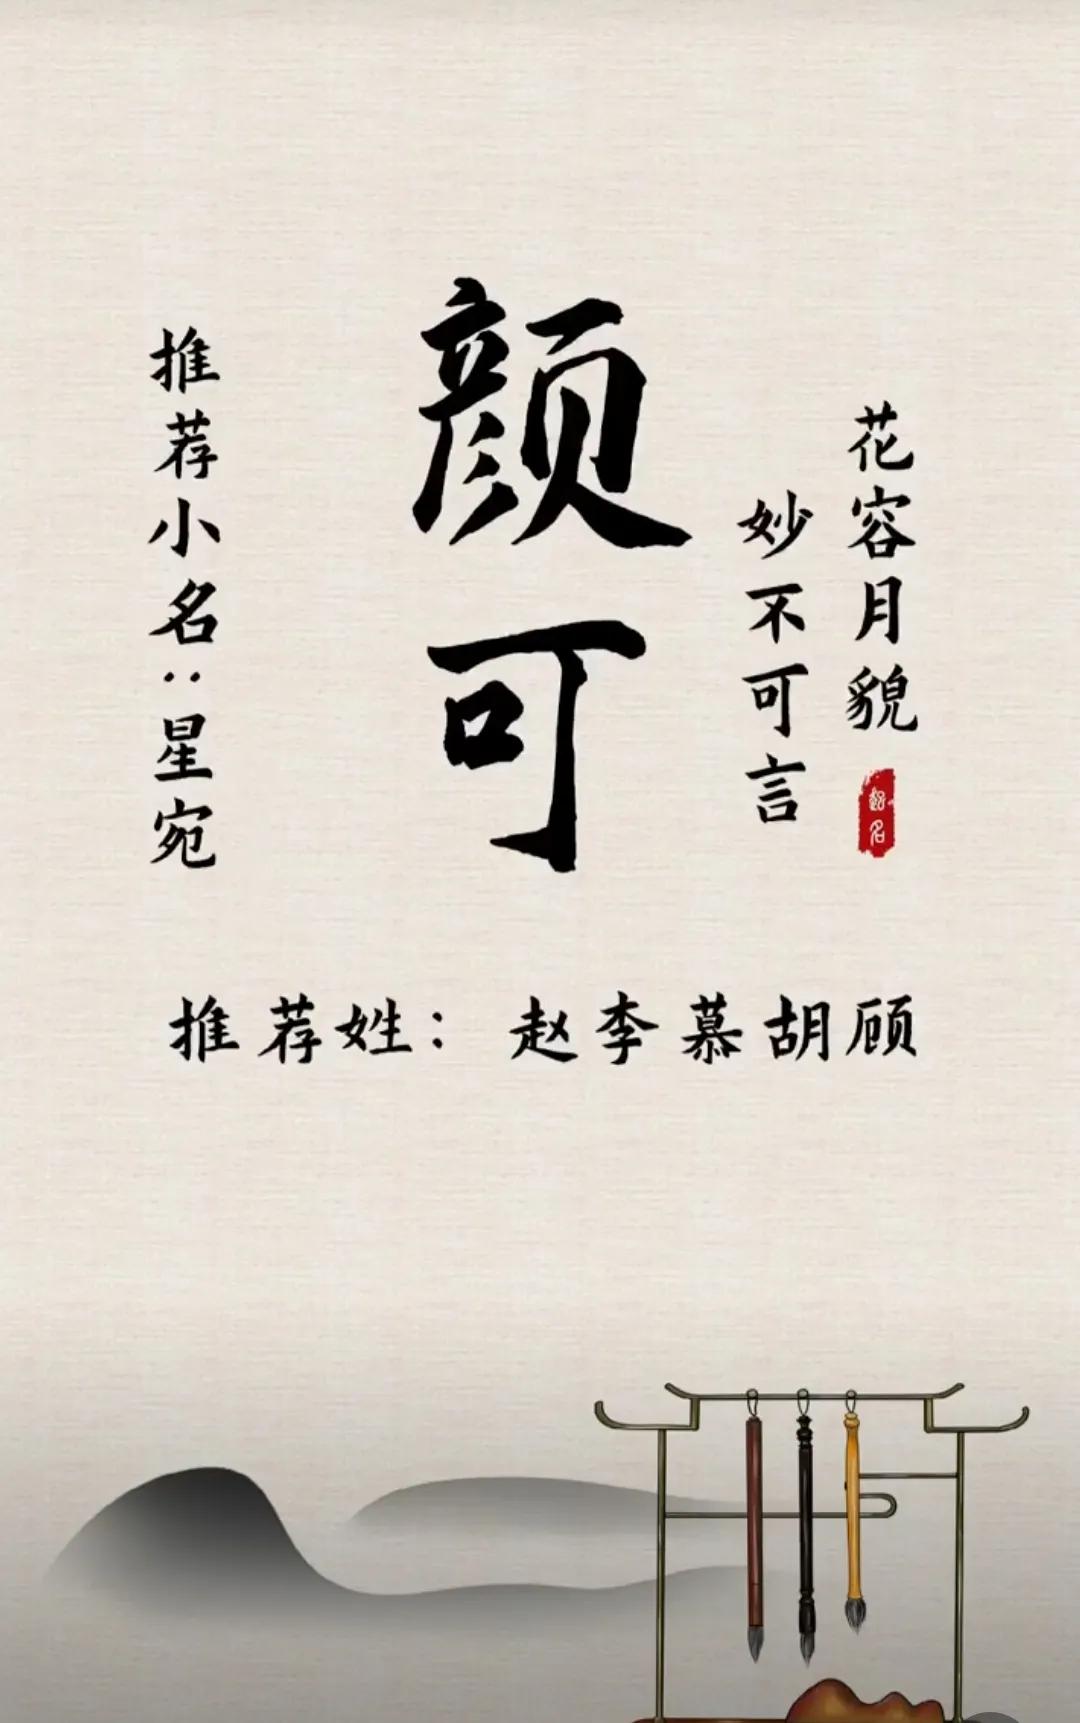 颜可
花容月貌
妙不可言
起名
推荐小名：星宛
推荐姓：赵李慕胡顾